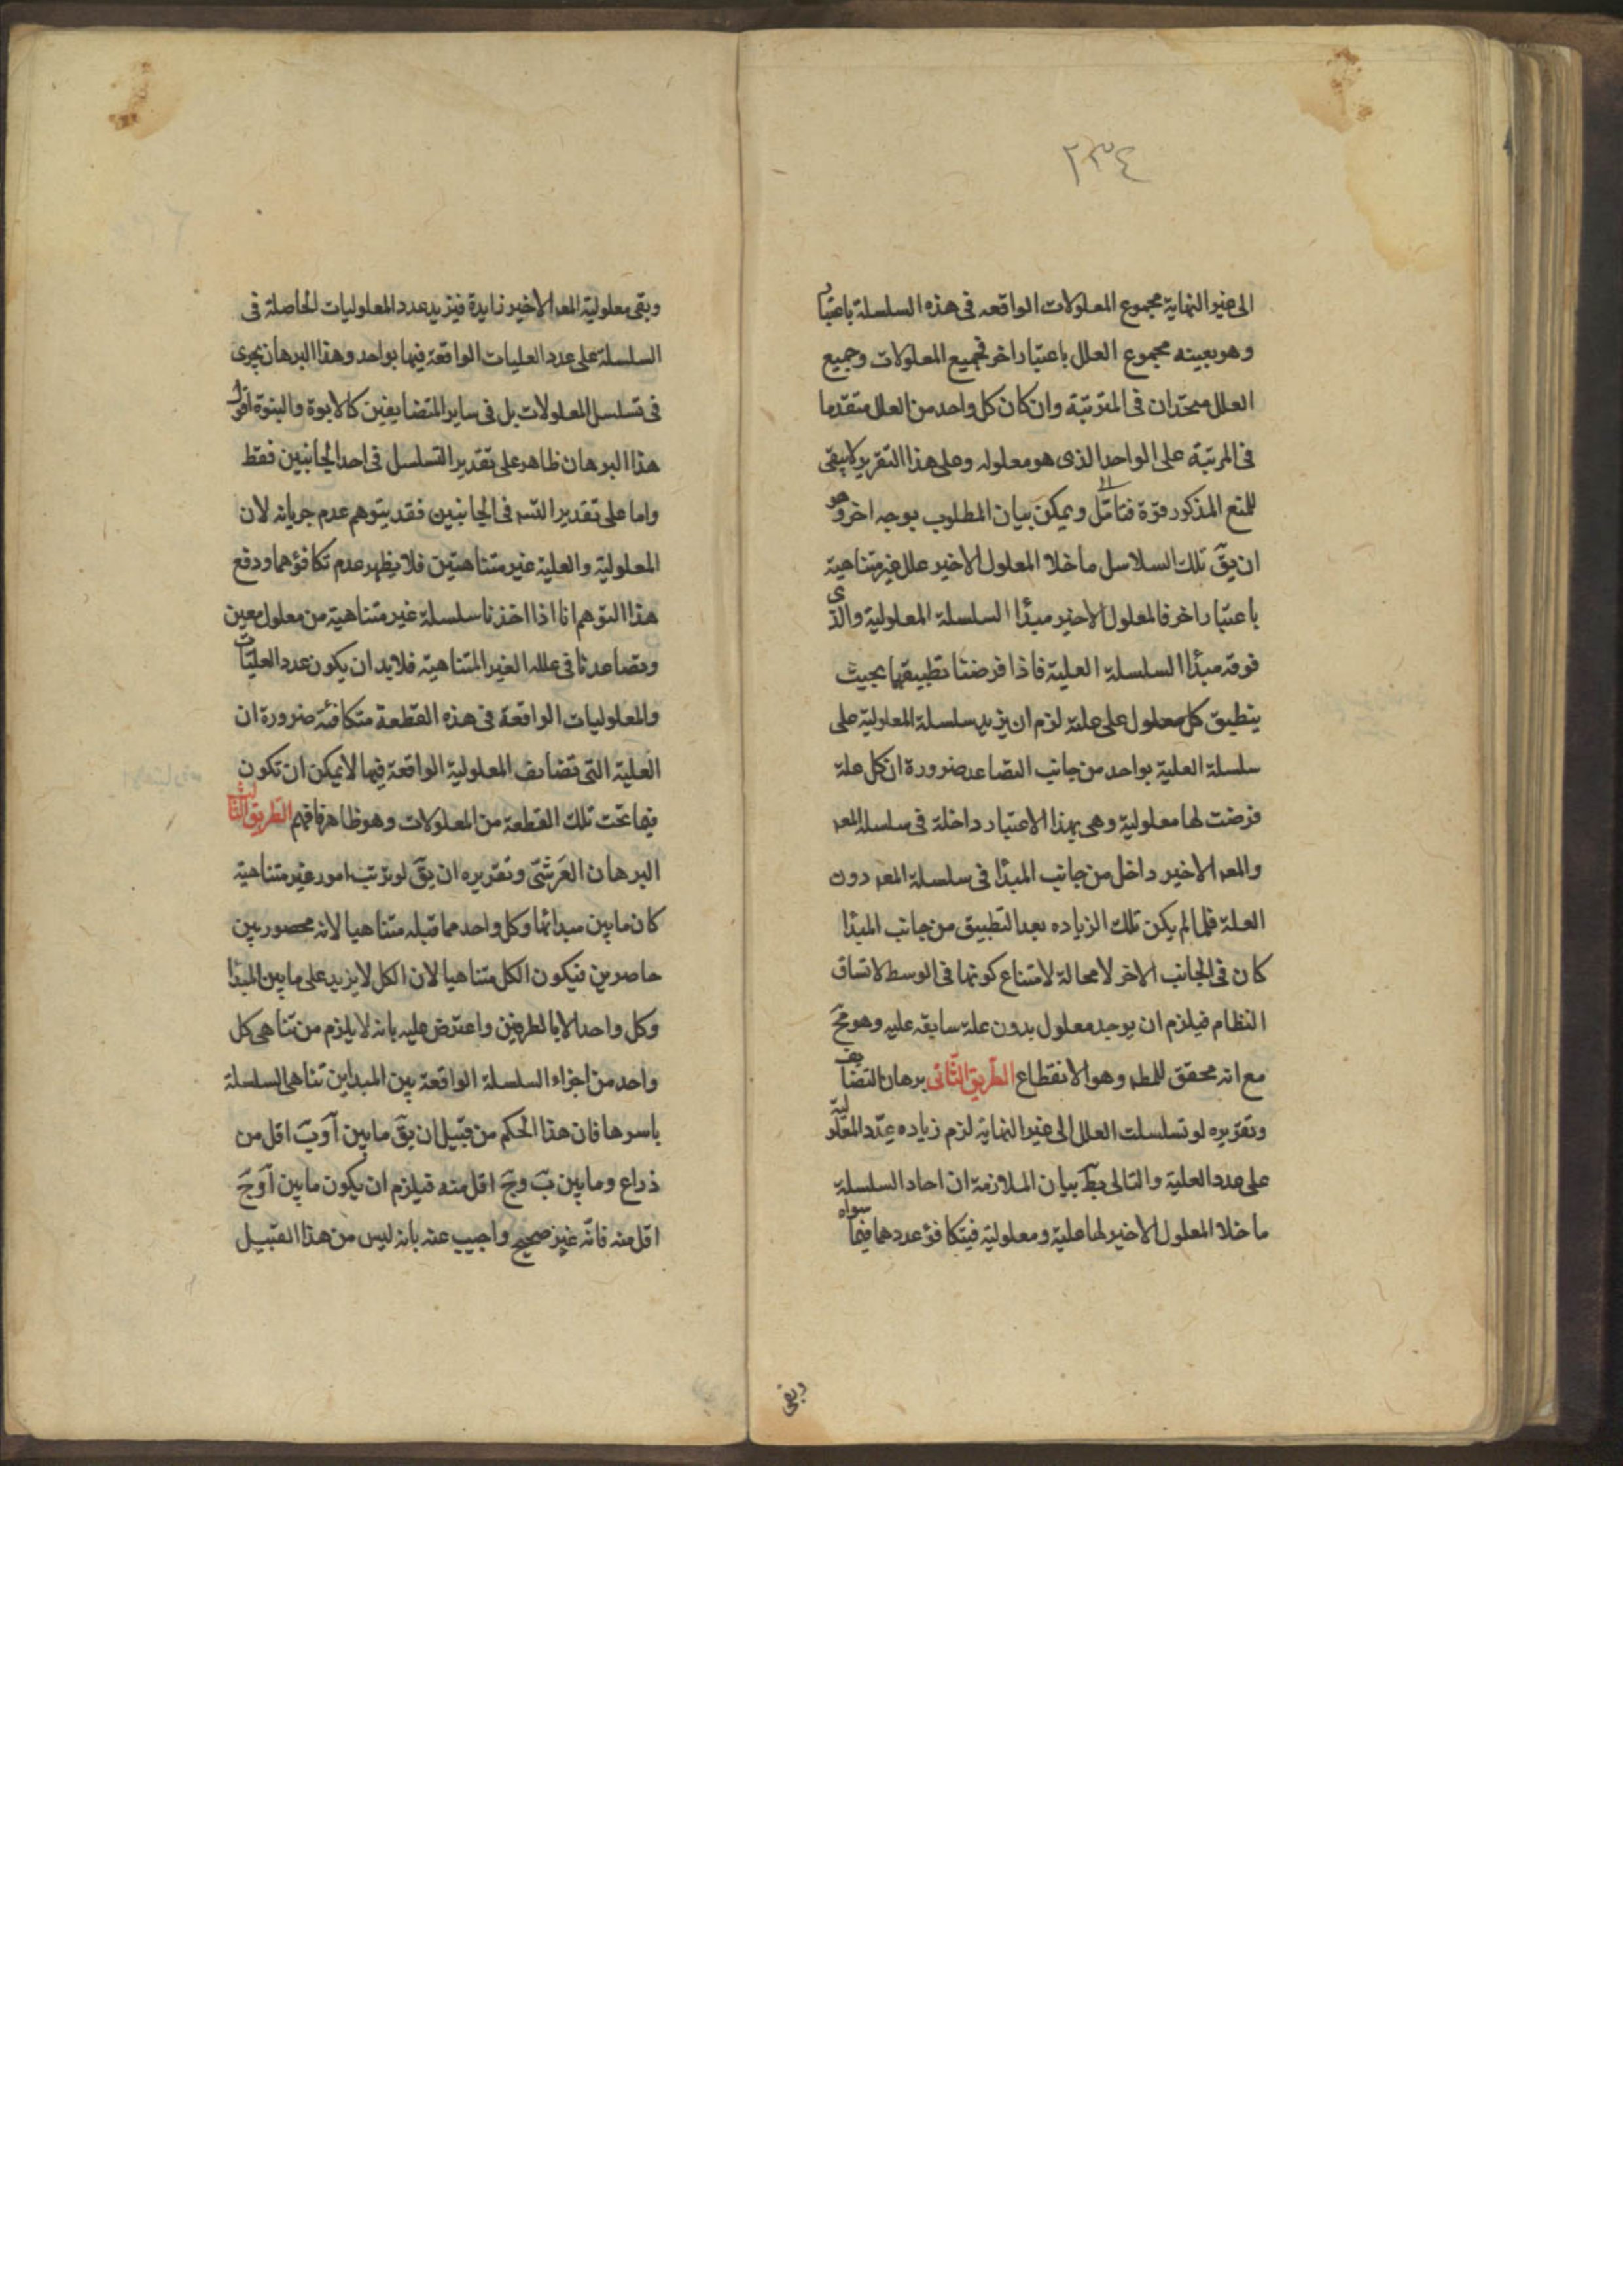 ٢٣٤
الى غير النهاية مجموع المعلولات الواقعه فى هذه السلسلة باعتبار
وهو بعينه مجموع العلل باعتبار اخر فجميع المعلولات وجميع
العلل متحدان فى المترتبة وان كان كل واحد من العلل متقدما
فى المرتبة على الواحد الذى هو معلوله وعلى هذا التقرير لا يبقى
للمنع المذكور قوة فتامّل ويمكن بيان المطلوب بوجه اخر وهو
ان يقٓ تلك السلاسل ما خلا المعلول الاخير علل غير متناهية
باعتبار اخر فالمعلول الاخير مبدأ السلسلة المعلولية والذى
فوقه مبدأ السلسلة العلية فاذا فرضنا تطبيقها بحيث
ينطبق كل معلول على علته لزم ان يزيد سلسلة المعلولية على
سلسلة العلية بواحد من جانب التصاعد ضرورة ان كل علة
فرضت لها معلولية وهى بهذا الاعتبار داخلة فى سلسلة المعہ
والمعہ الاخير داخل من جانب المبدأ فى سلسلة المعہ دون
العلة فلما لم يكن تلك الزياده بعد التطبيق من جانب المبدأ
كان فى الجانب الاخر لا محالة لامتناع كونها فى الوسط لاتساق
النظام فيلزم ان يوجد معلول بدون علة سابقه عليه وهو محٓ
مع انه محقق للمطہ وهو الانقطاع الطّريق الثّانى برهان التضايف
وتقريره لو تسلسلت العلل الى غير النهاية لزم زياده عدد المعلولية
على عدد العلية والتالى بطٓ بيان الملازمة ان احاد السلسلة
ما خلا المعلول الاخير لها علية ومعلولية فيتكافؤ عددهما فيما سواه
وبقى
وبقى معلولية المعہ الاخير زايدة فيزيد عدد المعلوليات الحاصلة فى
السلسلة على عدد العليات الواقعة فيها بواحد وهذا البرهان يجرى
فى تسلسل المعلولات بل فى ساير المتضايفين كالابوة والبنوة اقول
هذا البرهان ظاهر على تقدير التسلسل فى احد الجانبين فقط
واما على تقدير التسہ فى الجانبين فقد يتوهم عدم جريانه لان
المعلولية والعلية غير متناهيتين فلا يظهر عدم تكافؤهما ودفع
هذا التوهم انا اذا اخذنا سلسلة غير متناهية من معلول معين
وتصاعدنا فى علله الغير المتناهية فلا بد ان يكون عدد العليات
والمعلوليات الواقعة فى هذه القطعة متكافئة ضرورة ان
العلية التى تضايف المعلولية الواقعة فيها لا يمكن ان تكون
فيما تحت تلك القطعة من المعلولات وهو ظاهر فافهم الطّريق الثالث
البرهان العَرشىّ وتقريره ان يقٓ لو ترتب امور غير متناهية
كان ما بين مبدائها وكل واحد مما قبله متناهيا لانه محصور بين
حاصرين فيكون الكل متناهيا لان الكل لا يزيد على ما بين المبدأ
وكل واحد الا بالطرفين واعترض عليه بانه لا يلزم من تناهى كل
واحد من اجزاء السلسلة الواقعة بين المبداين تناهى السلسلة
باسرها فان هذا الحكم من قبيل ان يقٓ ما بين آ وبٓ اقل من
ذراع وما بين بٓ وجٓ اقل منه فيلزم ان يكون ما بين آ وجٓ
اقل منه فانّه غير صحيح واجيب عنه بانه ليس من هذا القبيل